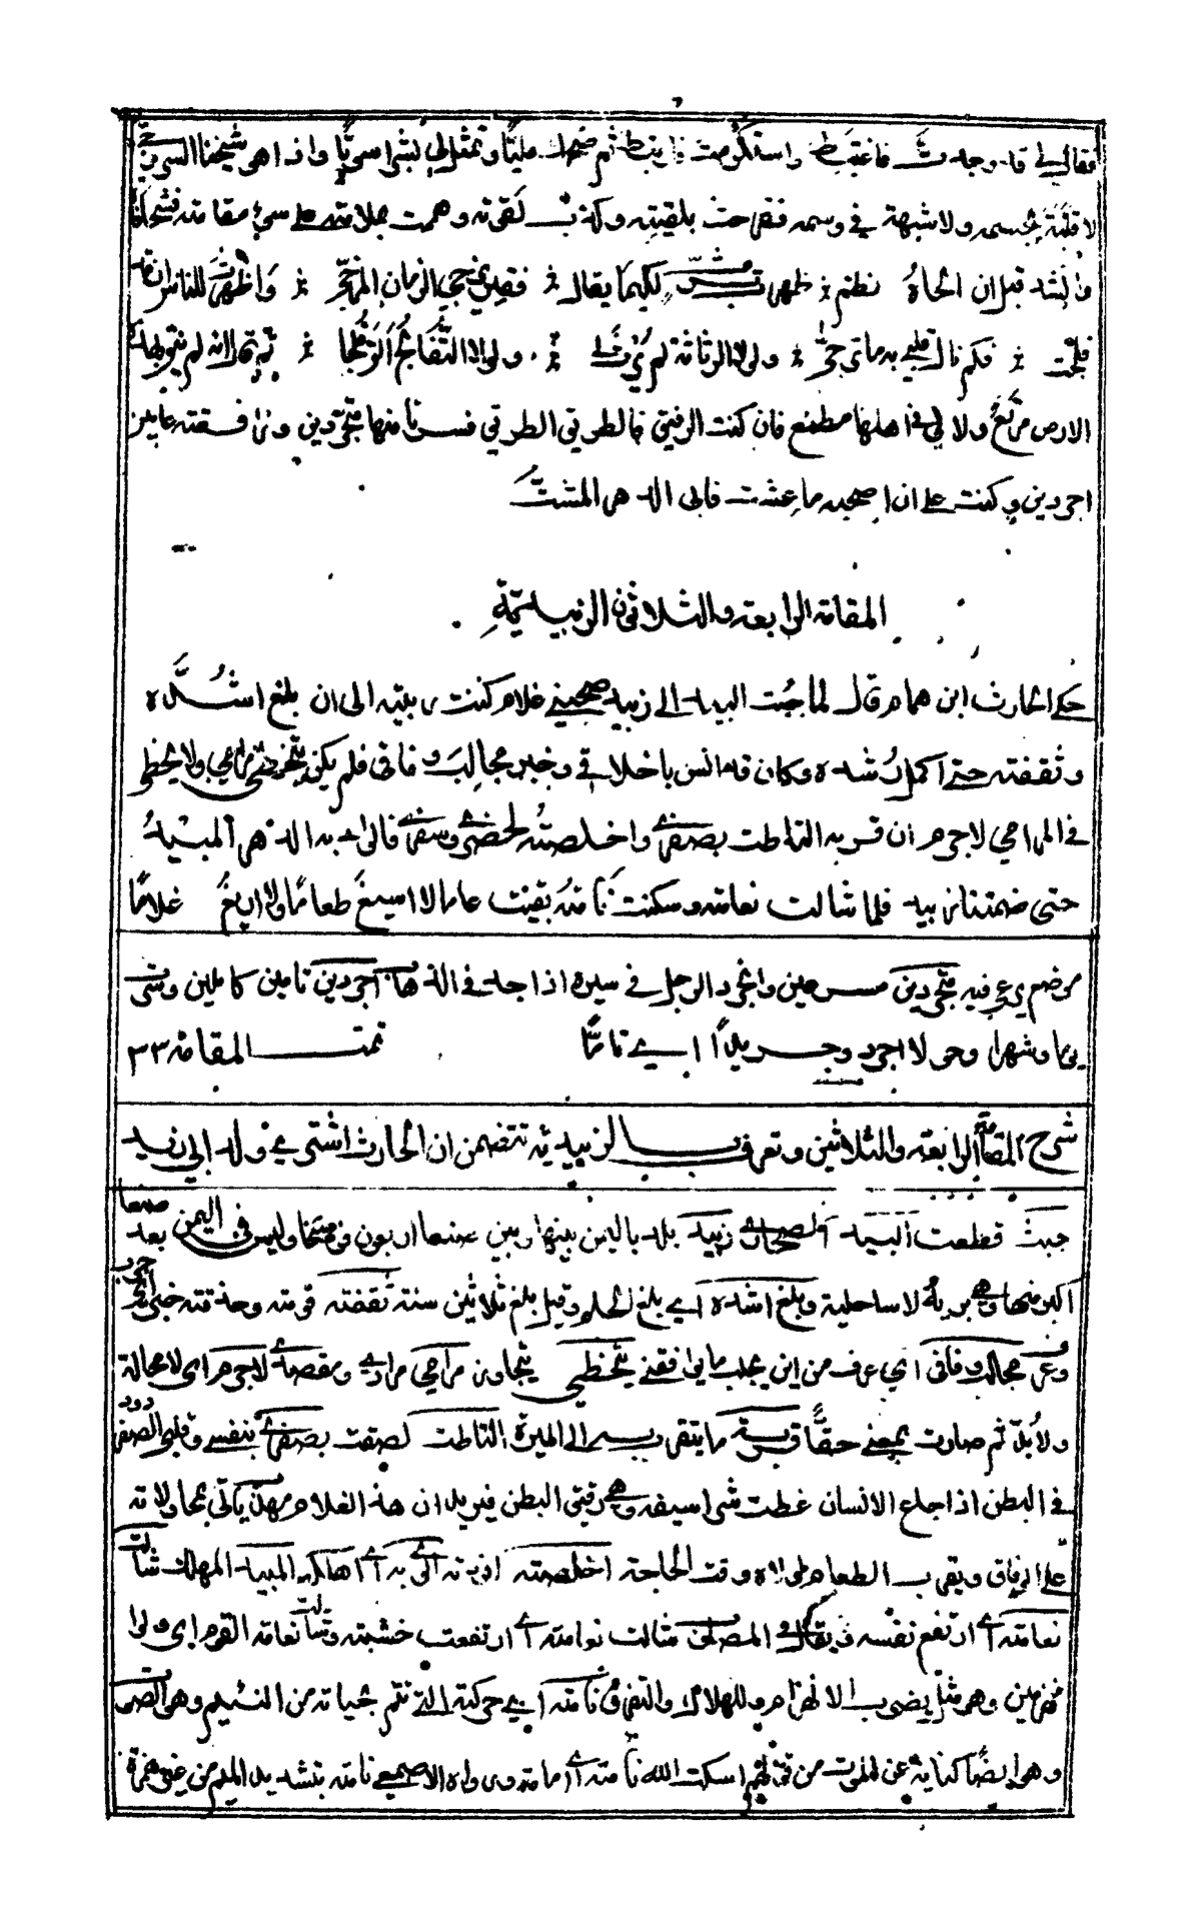 فقال لي قد وجدت فاغتبط واستكرمت فارتبط ثم ضحك مليا وتمثل لي بشرا سويا واذا هو شيخنا السروجي
لا قلبة بجسمه ولا شبهة في وسمه ففرحت بلقيته وكذب لقوته وهممت بملامته على سوء مقامته فشحا
وانشد قبل ان الحاه نظم ظهرت برث لكيما يقال فقير يزجي الزمان المزجى واظهرت للناس ان قد
فلجت فكم نال قلبي به ما ترجى ولولا الرثاثة لم يرث لي ولولا التفالج لم الق فلجا ثم قال انه لم يبق لي بهذه
الارض مرتع ولا في اهلها مطمع فان كنت الرفيق فالطريق الطريق فسرنا منها متجردين ورافقته عامين
اجردين وكنت على ان اصحبه ما عشت فابى الدهر المشتت
المقامة الرابعة والثلاثون الزبيدية
حكى الحارث ابن همام قال لما جبت البيد الى زبيد صحبني غلام كنت ربيته الى ان بلغ اشده
وثقفته حتى اكمل رشده وكان قد انس باخلاقي وخبر مجالب وفاقي فلم يكن يتخطى مرامي ولا يخطي
في المرامي لا جرم ان قربه التاطت بصفري واخلصته لحضري وسفري فالوى به الدهر المبيد
حتى ضمتنا زبيد فلما شالت نعامته وسكنت نامته بقيت عاما لا اسيغ طعاما ولا اريغ غلاما
موضع يرعى فيه متجردين مسرعين وانجرد الرجل في سيره اذا جد في الذهاب اجردين تامين كاملين وتسمى
يوما وشهرا وحولا اجرد وجريدا اي تاما تمت المقامة ٣٣
شرح المقامة الرابعة والثلاثين وتعرف بالزبيدية تتضمن ان الحارث اشترى
جبت قطعت البيد الصحارى زبيد بلد باليمن بينها وبين صنعا اربعون فرسخا وليس في اليمن بعد صنعا
اكبر منها وهي برية لا ساحلية وبلغ اشده اي بلغ الحلم وقيل بلغ ثلاثين سنة ثقفته قومته وحذقته خبر جرب
وعرف مجالب وفاقي اي عرف من اين يجلب ما يوافقني يتخطى يتجاوز مرامي مرادي ومقصدي لا جرم اي لا محالة
ولا بد ثم صارت بمعنى حقا قربه ما يتقرب به الى الميرة التاطت لصقت بصفري بنفسي وقلبي الصفر دود
في البطن اذا جاع الانسان عضت شراسيفه وهي رقيق البطن فيريد ان هذا الغلام ياتي بمحاولاته
على الرفاق ويقرب الطعام لمولاه وقت الحاجة اخلصته افردته الوى به اي اهلكه المبيد المهلك شالت
نعامته اي ارتفع نفسه ويقال المصلوب شالت نعامته اي ارتفعت خشبته وشالت نعامة القوم اي ولوا
منهزمين وهو مثل يضرب الانهزام وللهلاك والتفرق نامته اي حركته التي تنم بحياته من النئيم وهو الصوت
وهو ايضا كناية عن الموت من قولهم اسكت الله نامته اي اماته ورواه الاصمعي نامته بتشديد الميم من غير همزة